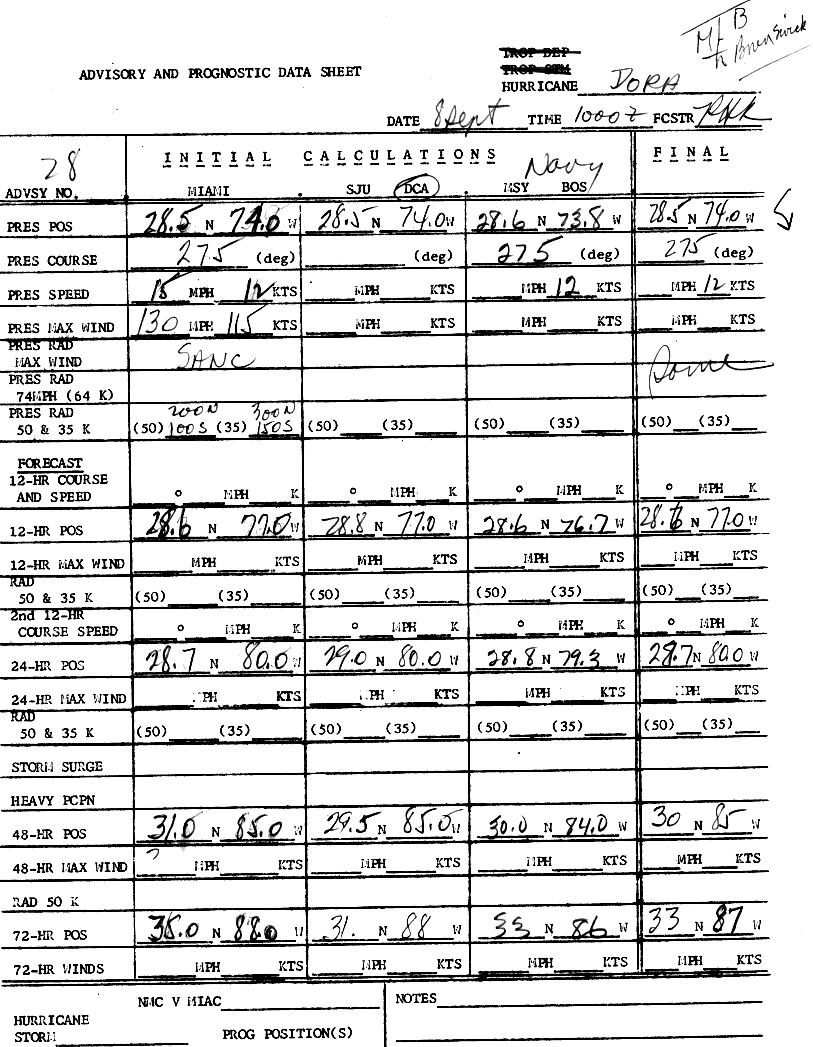 MIB
to Brunswick
TROP DEP
TROP STM
HURRICANE DORA
ADVISORY AND PROGNOSTIC DATA SHEET
DATE 8 Sept TIME 1000 Z FCSTR
28 INITIAL CALCULATIONS Navy FINAL
ADVSY NO. MIAMI SJU DCA MSY BOS
PRES POS 28.5 N 74.0 W 28.5 N 74.0 W 28.6 N 73.8 W 28.5 N 74.0 W
PRES COURSE 275 (deg) (deg) 275 (deg) 275 (deg)
PRES SPEED 15 MPH 12 KTS MPH KTS MPH 12 KTS MPH 12 KTS
PRES MAX WIND 130 MPH 115 KTS MPH KTS MPH KTS MPH KTS
PRES RAD
MAX WIND SANC Same
PRES RAD
74MPH (64 K)
PRES RAD 200N 300N
50 & 35 K (50) 100S (35) 150S (50) (35) (50) (35) (50) (35)
FORECAST
12-HR COURSE
AND SPEED ° MPH K ° MPH K ° MPH K ° MPH K
12-HR POS 28.6 N 77.0 W 28.8 N 77.0 W 28.6 N 76.7 W 28.6 N 77.0 W
12-HR MAX WIND MPH KTS MPH KTS MPH KTS MPH KTS
RAD
50 & 35 K (50) (35) (50) (35) (50) (35) (50) (35)
2nd 12-HR
COURSE SPEED ° MPH K ° MPH K ° MPH K ° MPH K
24-HR POS 28.7 N 80.0 W 29.0 N 80.0 W 28.8 N 79.3 W 28.7 N 80.0 W
24-HR MAX WIND MPH KTS MPH KTS MPH KTS MPH KTS
RAD
50 & 35 K (50) (35) (50) (35) (50) (35) (50) (35)
STORM SURGE
HEAVY PCPN
48-HR POS 31.0 N 85.0 W 29.5 N 85.0 W 30.0 N 84.0 W 30 N 85 W
48-HR MAX WIND ? MPH KTS MPH KTS MPH KTS MPH KTS
RAD 50 K
72-HR POS 35.0 N 88.0 W 31. N 88 W 33 N 86 W 33 N 87 W
72-HR WINDS MPH KTS MPH KTS MPH KTS MPH KTS
NMC V MIAC NOTES
HURRICANE
STORM PROG POSITION(S)